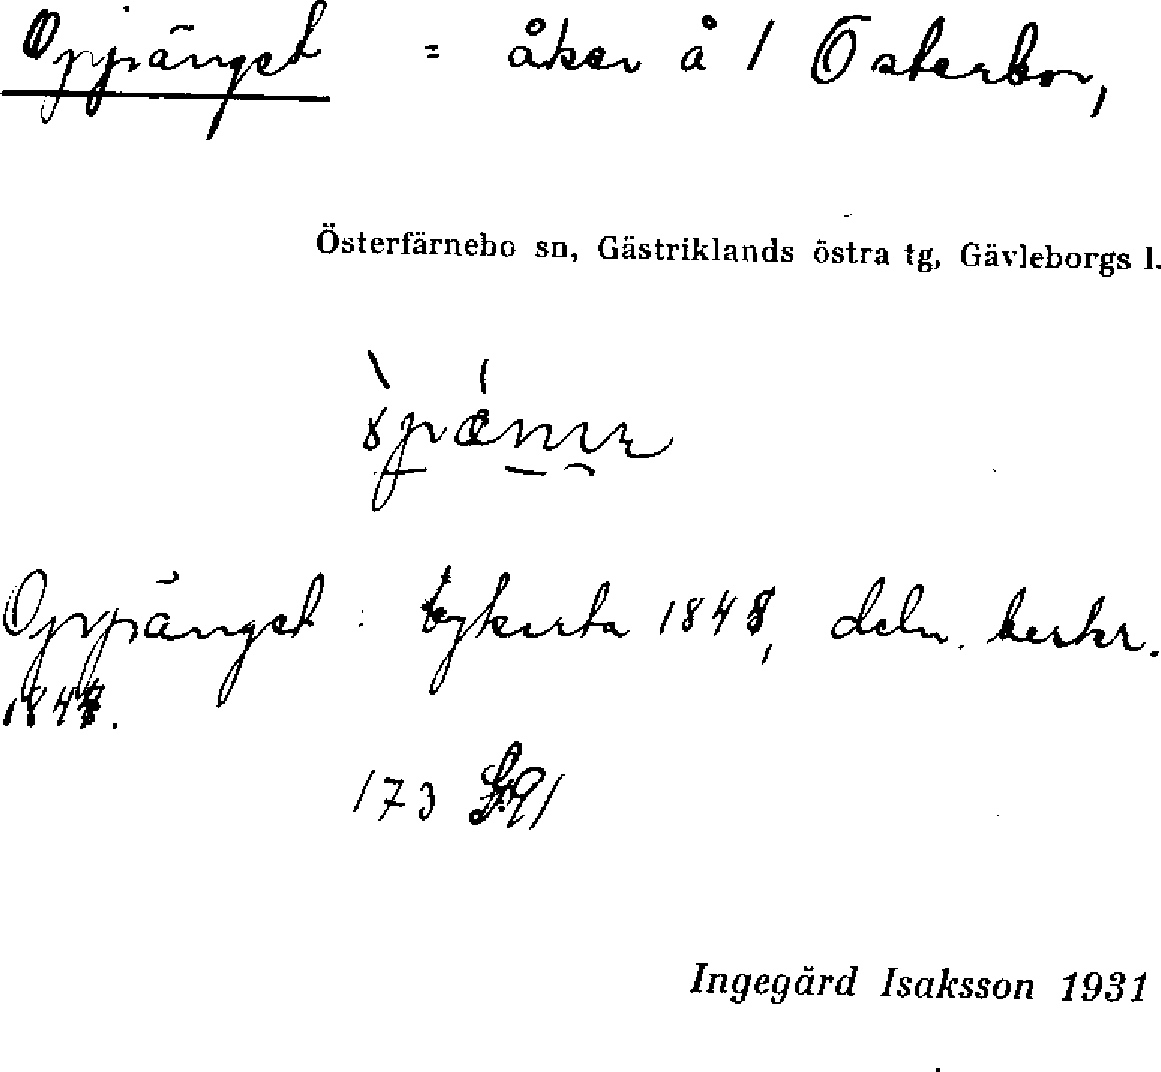 Oppänget = åker å 1 Österbor,
Österfärnebo sn, Gästriklands östra tg, Gävleborgs l.
Oppänget : bykarta 1848, deln. beskr.
1848.
173
Ingegärd Isaksson 1931